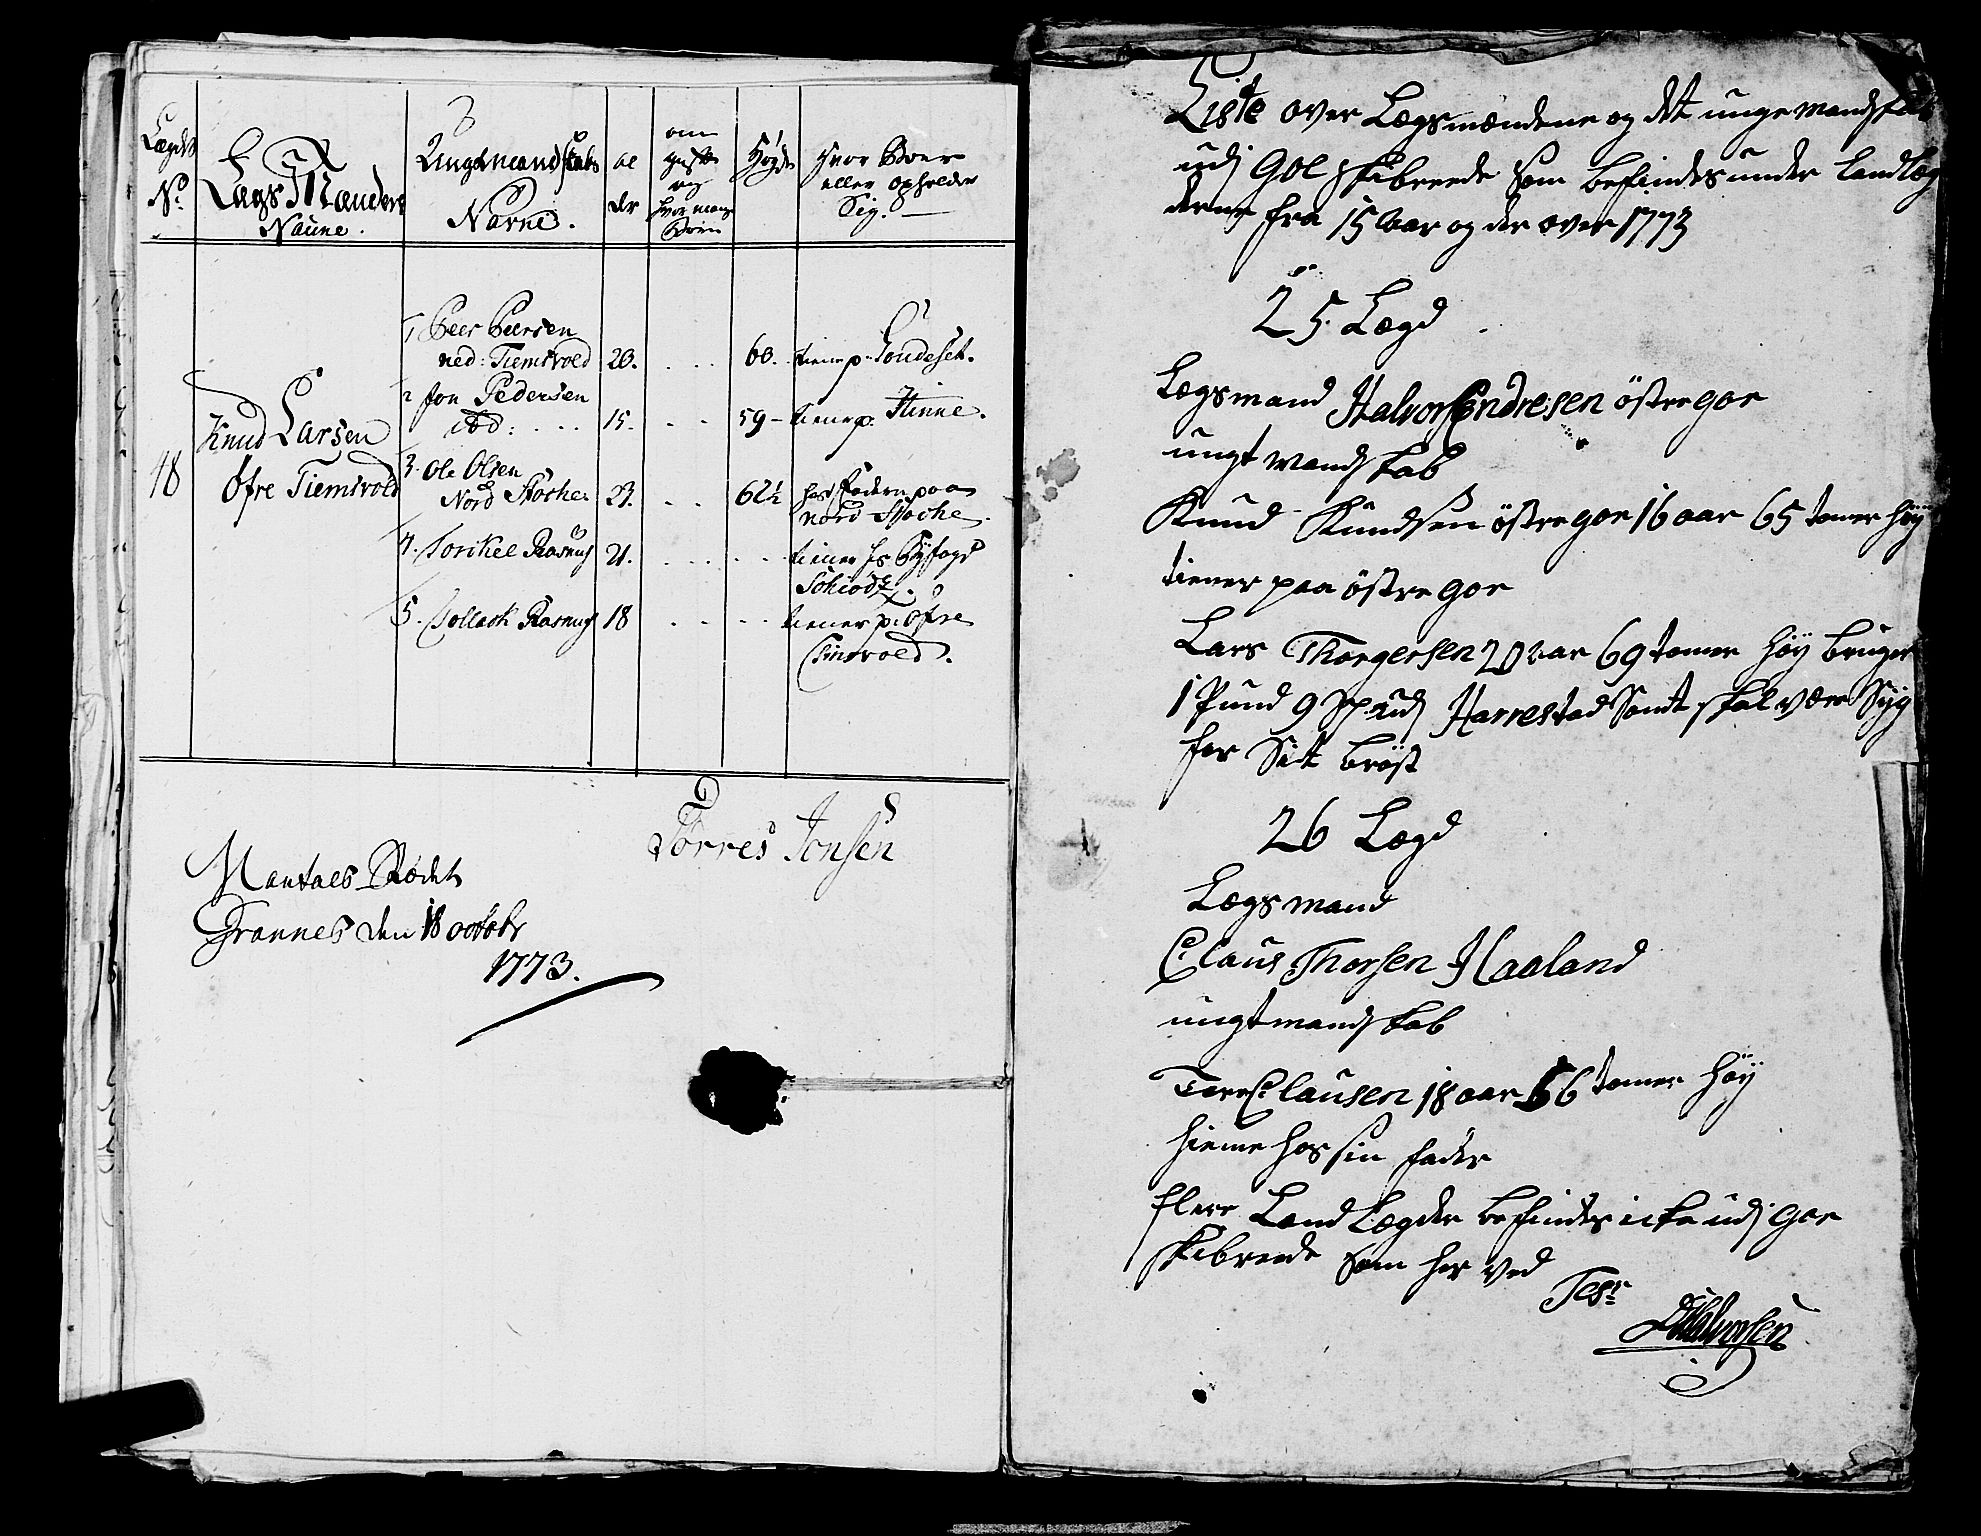 Lægds
No.
Lægs Mænders
Naune.
Ungt mandskabs
Navne.
al
der
om
gift
og
hvor mang
Børn
Høyde
Hvor Boer
eller opholder
Sig. —
18
Knud Larsen
Øfre Tiemsvold
1 Peer Peersen
ned: Tiemsvold 20. . . . 60. tiener p. Goudeset.
2 Jon Pedersen
ibd: . . . 15. . . 59 – tiener p. Hinne.
3. Ole Olsen
Nord Stoche 23. . . 62½ hos Faderen paa
nord Stoche.
4. Torikel Rasmus 21. . . . . . tiener hs Byfogd
Schiødz.
5. Tollach Rasmus 18 . . . . tiener p. øfre
Timsvold.
Torres Jonsen
Mantals Stædet
Grannes den 18 octobr
1773.
Liste over Lægsmændene og det unge mandskab
udj Goe skibreede som befindes under Landlæg
derne fra 15 aar og der over 1773
25. Lægd
Lægsmand Halvor Endresen østre goe
ungt mandskab
Knud Knudsen østre goe 16 aar 65 tomer høy
tiener paa østre goe
Lars Thorgersen 20 aar 69 tomer høy bruger
1 Pund 9 udj Harrestad Samt skal være Syg
for Sit brøst
26 Lægd
Lægsmand
Claus Thorsen Haaland
ungt mandskab
Tore Clausen 18 aar 56 tomer høy
hieme hos sin fader
flere Land Lægder befindes icke udj Goe
skibreede som her ved
Test:
Halvorsen